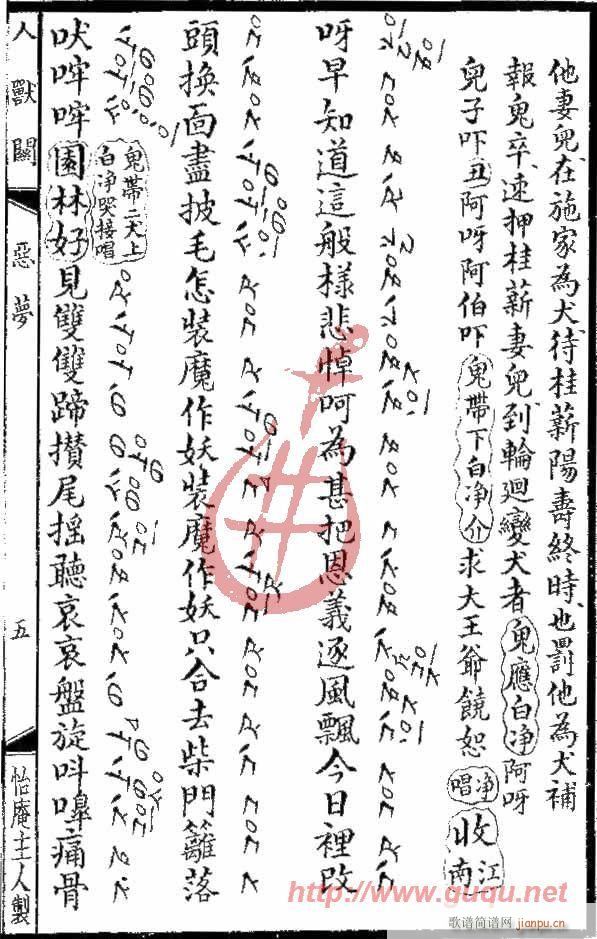 他妻兒在施家為犬待桂薪陽壽終時也罰他為犬補
報鬼卒速押桂薪妻兒到輪迴變犬者鬼應白净阿呀
兒子吓丑阿呀阿伯吓鬼帶下白净介求大王爺饒恕净唱收江南
呀早知道這般樣悲悼呵為甚把恩義逐風飄今日裡改
頭換面盡披毛怎裝魔作妖裝魔作妖只合去柴門籬落
吠哰哰鬼帶二犬上白净哭接唱園林好見雙雙蹄攢尾揺聽哀哀盤旋呌嘷痛骨
人獸關
惡夢
五
怡庵主人製
http://www.guqu.net
歌谱简谱网
jianpu.cn